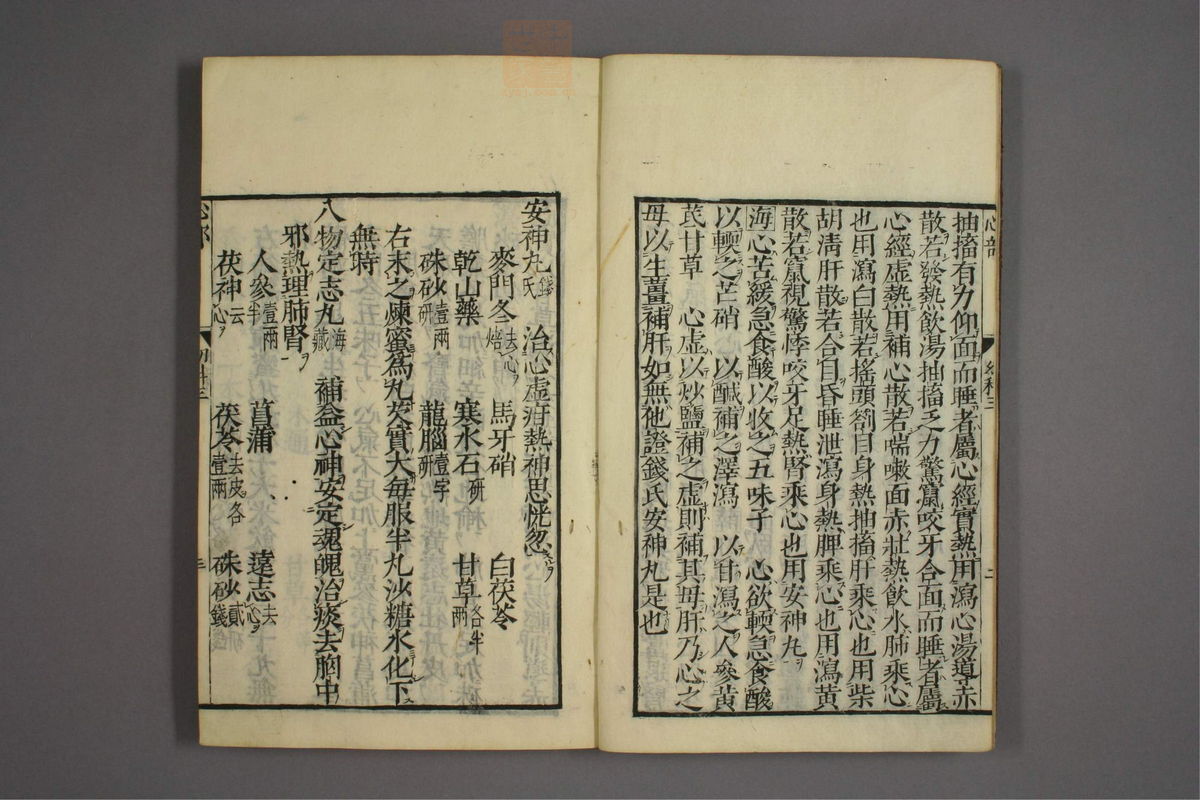 心部
抽搐有力仰面而睡者屬心經實熱用瀉心湯導赤
散若發熱飲湯抽搐乏力驚竄咬牙合面而睡者屬
心經虛熱用補心散若喘嗽面赤壯熱飲水肺乘心
也用瀉白散若搖頭劄目身熱抽搐肝乘心也用柴
胡清肝散若合目昏睡泄瀉身熱脾乘心也用瀉黃
散若竄視驚悸咬牙足熱腎乘心也用安神丸
海心苦緩急食酸以收之五味子 心欲耎急食酸
以耎之芒硝 以鹹補之澤瀉 以甘瀉之人參黃
芪甘草 心虛以炒鹽補之虛則補其母肝乃心之
母以生薑補肝如無他證錢氏安神丸是也
安神丸錢氏 治心虛疳熱神思恍忽
麥門冬去心焙 馬牙硝 白茯苓
乾山藥 寒水石研 甘草各半兩
硃砂壹兩研 龍腦壹字研
右末之煉蜜為丸芡實大每服半丸沙糖水化下
無時
八物定志丸海藏 補益心神安定魂魄治痰去胸中
邪熱理肺腎
人參壹兩半 菖蒲 遠志去心
茯神去心 茯苓去皮各壹兩 硃砂貳錢